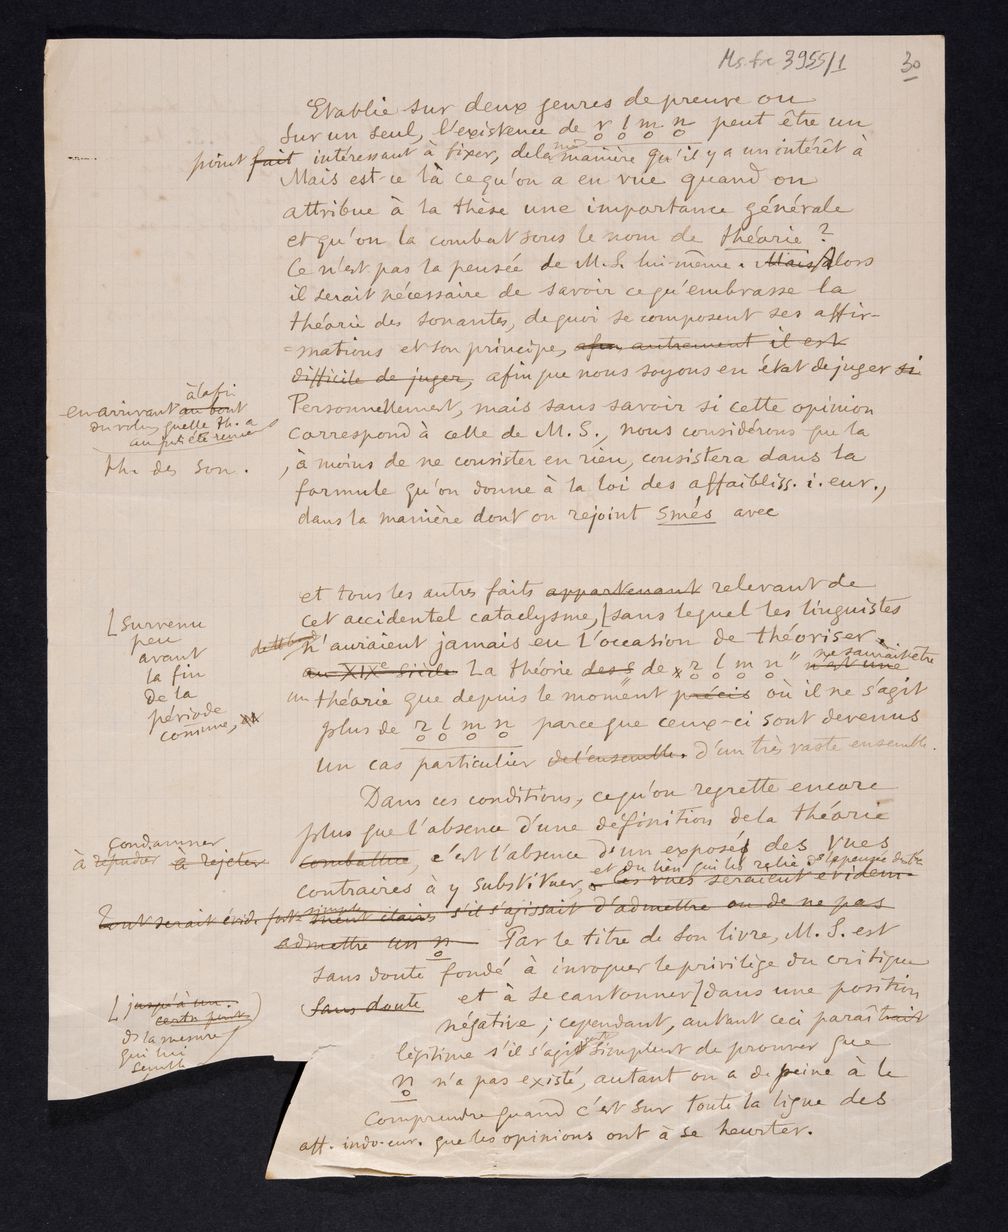 Ms. fr. 3955/1
30
Etablie sur deux genres de preuve ou
sur un seul, l'existence de r̥ l̥ m̥ n̥ peut être un
point fait intéressant à fixer, de la manière qu'il y a un intérêt à
Mais est-ce là ce qu'on a en vue quand on
attribue à la thèse une importance générale
et qu'on la combat sous le nom de théorie ?
Ce n'est pas la pensée de M. S. lui-même. Mais Alors
il serait nécessaire de savoir ce qu'embrasse la
théorie des sonantes, de quoi se composent ses affir-
-mations et son principe, afin autrement il est
difficile de juger, afin que nous soyons en état de juger si
en arrivant au bout à la fin
du volume quelle th. a
th. des son.
Personnellement, mais sans savoir si cette opinion
correspond à celle de M. S., nous considérons que la
, à moins de ne consister en rien, consistera dans la
formule qu'on donne à la loi des affaibliss. i. eur.,
dans la manière dont on rejoint smés avec
et tous les autres faits appartenant relevant de
cet accidentel cataclysme, [sans lequel les linguistes
[survenu
peu
avant
la fin
de la
période
comme,
n'auraient jamais eu l'occasion de théoriser.
au XIXe siècle. La théorie des s de * r̥ l̥ m̥ n̥ " n'est une ne saurait être
un théorie que depuis le moment précis où il ne s'agit
plus de r̥ l̥ m̥ n̥ parce que ceux-ci sont devenus
un cas particulier de l'ensemble. d'un très vaste ensemble.
Dans ces conditions, ce qu'on regrette encore
plus que l'absence d'une définition de la théorie
condamner
à répudier à rejeter
combattue, c'est l'absence d'un exposé des vues
contraires à y substituer, et du lien qui les relie
les vues seraient évidem-
tout serait évid.
ment claires s'il s'agissait d'admettre ou de ne pas
simple
admettre un n̥ Par le titre de son livre, M. S. est
sans doute fondé à invoquer le privilège du critique
Sans doute et à se cantonner [dans une position
[jusqu'à un
certn point
ds la mesure
qui lui
semble
négative ; cependant, autant ceci paraîtrait
légitime s'il s'agit simplent de prouver que
n̥ n'a pas existé, autant on a de peine à le
comprendre quand c'est sur toute la ligne des
aff. indo-eur. que les opinions ont à se heurter.